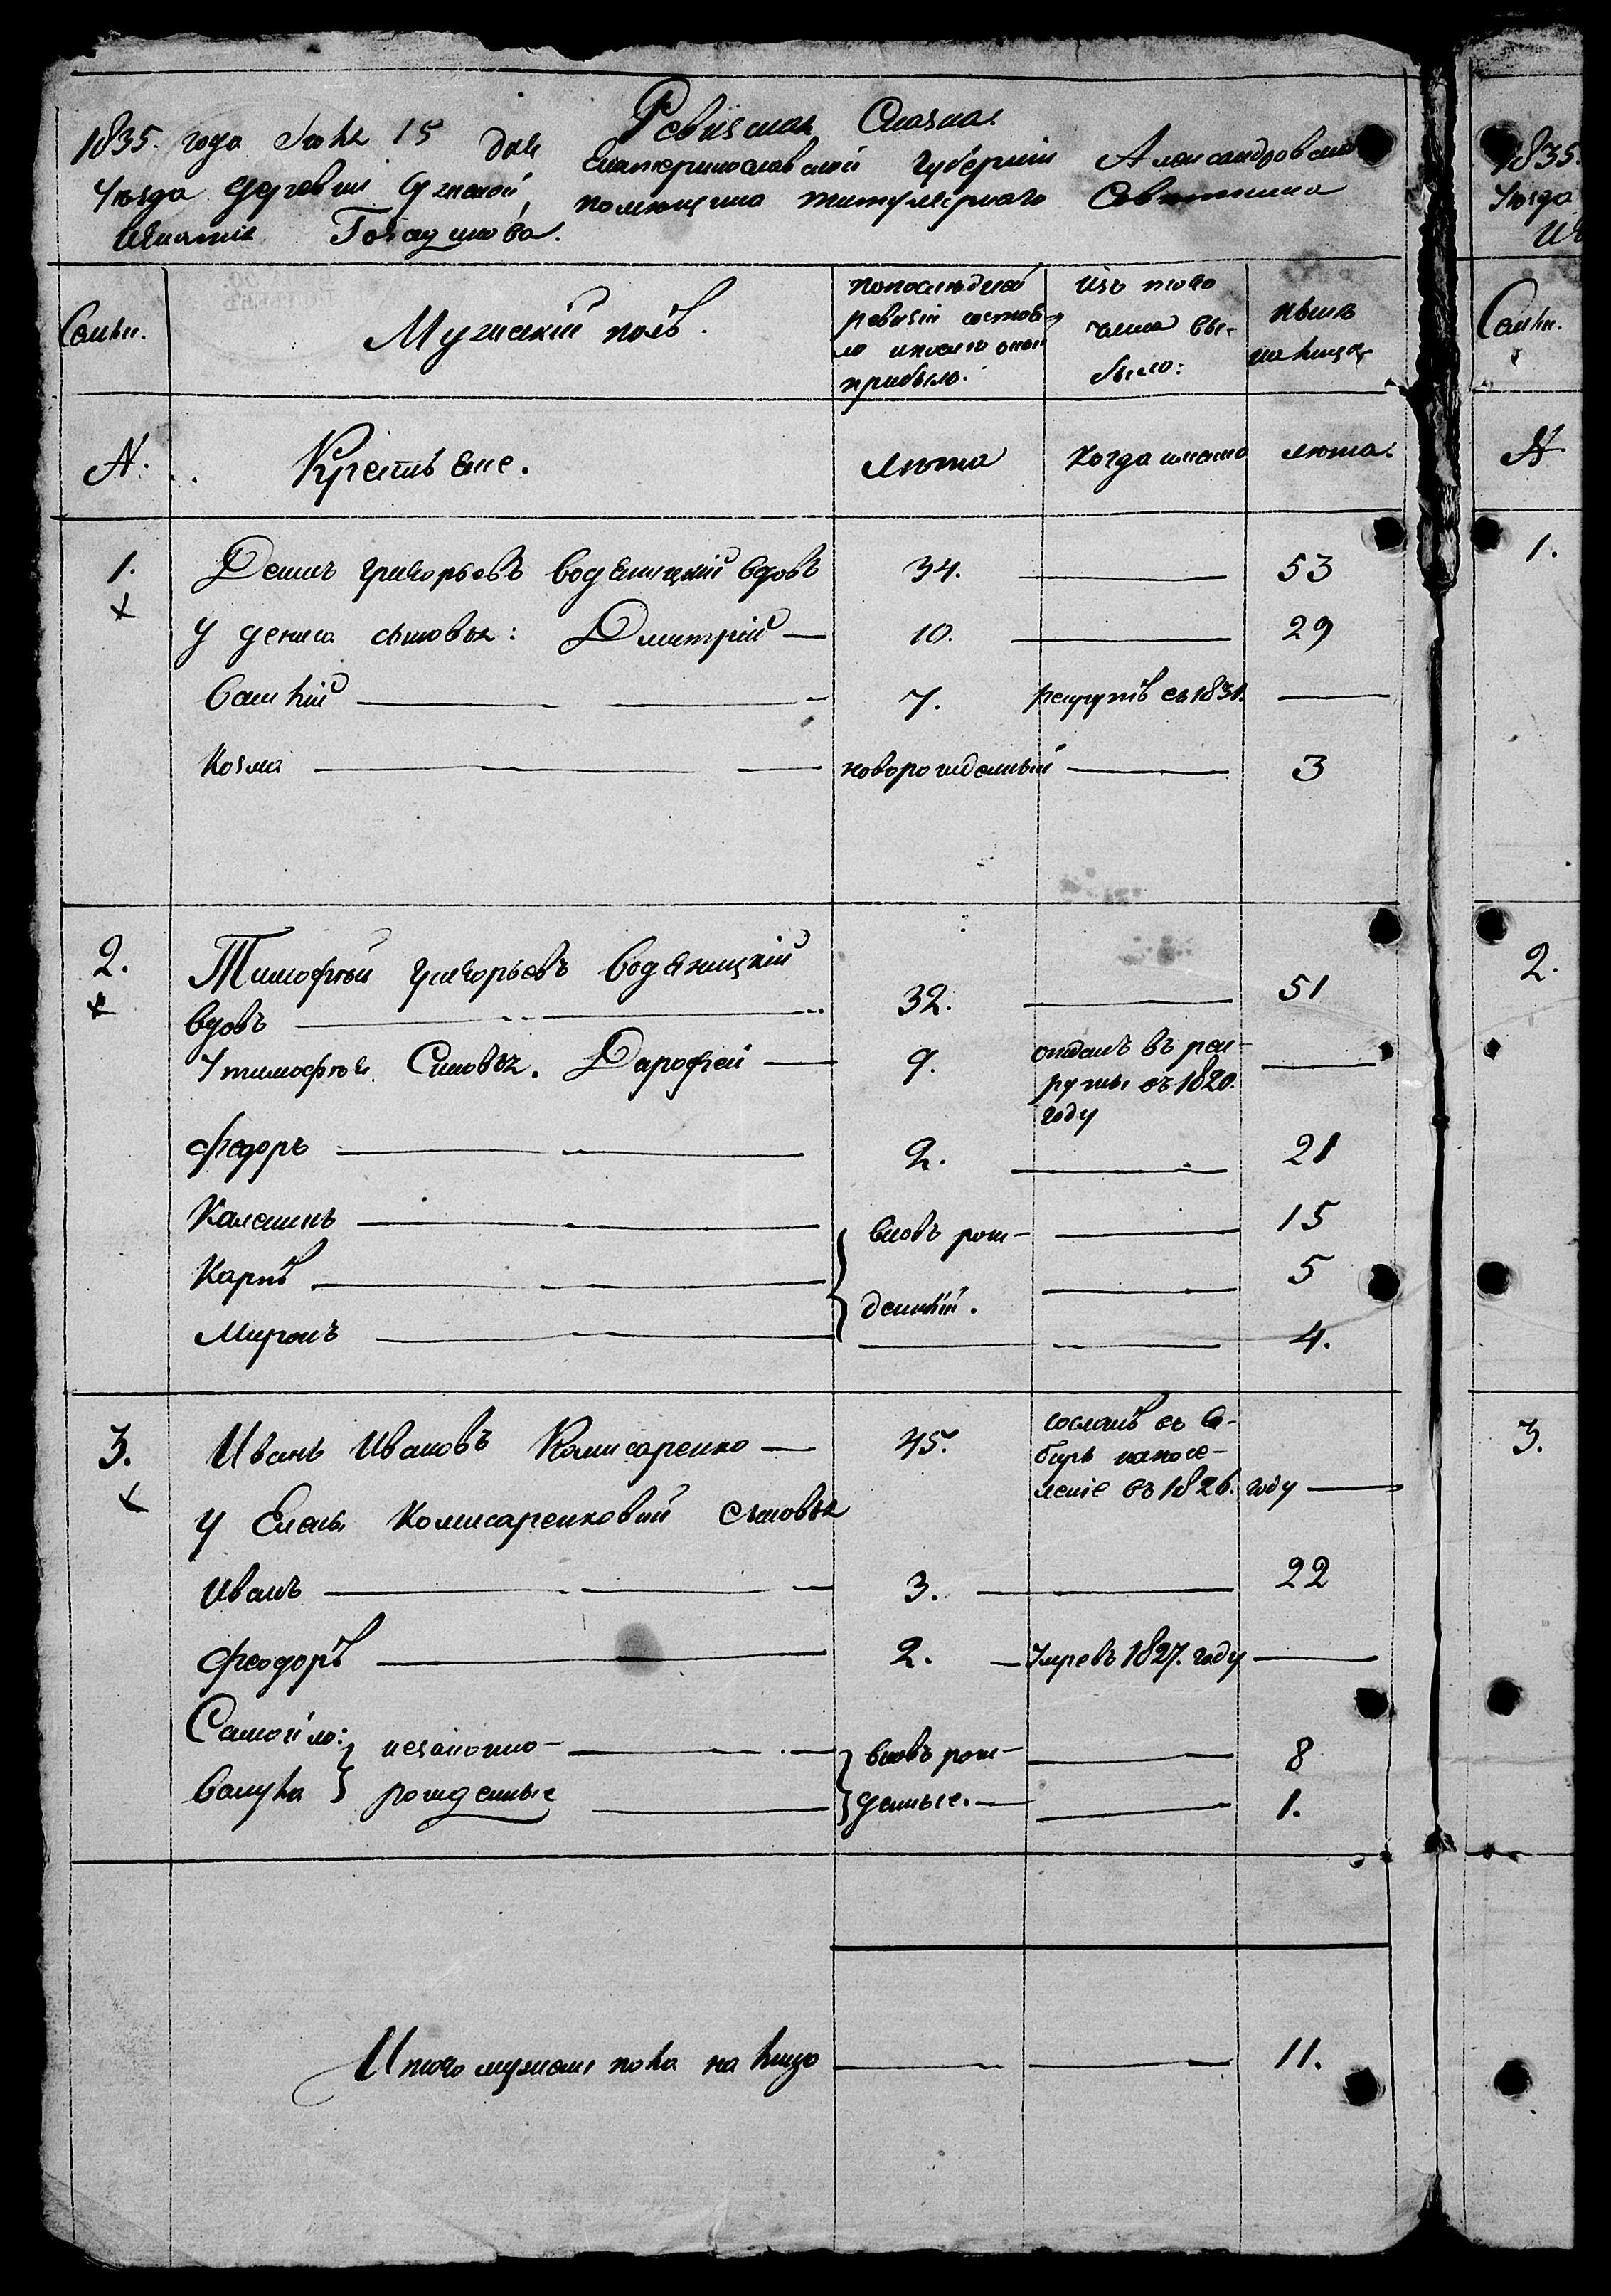 Ревизская Сказка.
1835. года Іюня 15 дня Екатеринославской Губерніи Александровскаго
Уѣзда Деревни помещика титулярнаго Советника
Игнатія
Семьи.
Мужский полъ.
По последней
ревизіи состоя-
ло и после оной
прибыло.
Изъ того
числа вы-
было:
Нынѣ
на лицо
№.
Крестьяне.
Лѣта
Когда имяно
Лѣта.
1. Денисъ Григорьевъ Водяницкій вдовъ 34. 53
У Дениса сыновья: Дмитрій 10. 29
Василій 7. рекрутъ въ 1831.
Козма новорожденный 3
2. Тимофей Григорьевъ Водяницкій
вдовъ 32. 51
У тимофея Сыновья. Дарофей 9. отданъ въ рек-
руты въ 1820.
году
Федоръ 2. 21
Каленикъ вновь рож- 15
Карпъ 5
денніи.
Миронъ 4.
3. Иванъ Ивановъ Комисаренко 45. сосланъ въ Си-
бирь на посе-
леніе въ 1826. году
У Елены Комисаренковой сыновья
Иванъ 3. 22
Феодоръ 2. Умре въ 1827. году
Самойло: незаконно- вновь рож- 8
рожденные денные. 1.
Итого мужеска пола на лицо 11.
1835.
Уѣзда
Иг
Семьи.
№.
1.
2.
3.